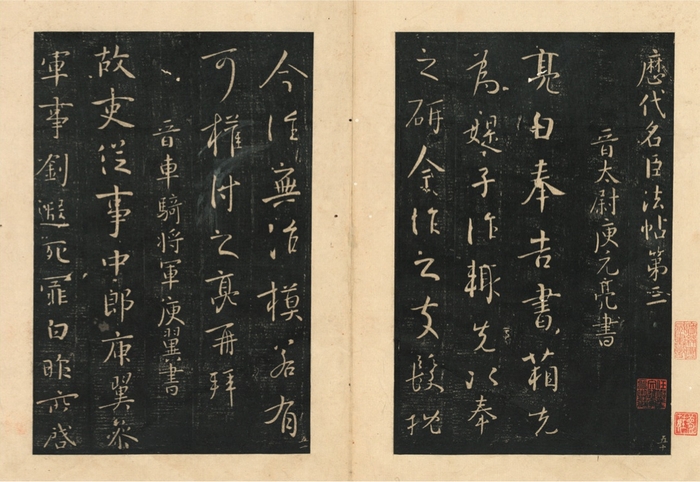 歷代名臣法帖第三
晉太尉庾元亮書
亮由奉告書箱先
為媞子作輙先以奉
之研金作之支髮枕
今作無治模若有
可權付之亮再拜
晉車騎将軍庾翼書
故吏從事中郎庾翼參
軍事劉遐死罪白昨所啓